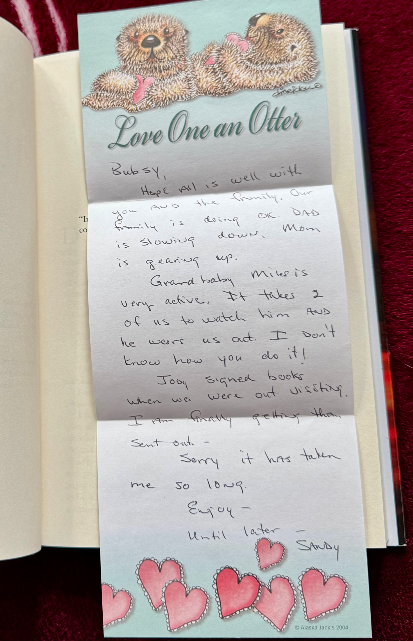 Love One an Otter
Bubsy,
Hope All is well with
you AND the family. Our
family is doing ok. DAD
is slowing down. Mom
is gearing up.
Grandbaby Mike is
very active. It takes 2
of us to watch him AND
he wears us out. I Don't
know how you do it!
Jody signed books
when we were out visiting.
I am finally getting them
sent out -
Sorry it has taken
me so long.
Enjoy -
Until later -
SANDY
2004